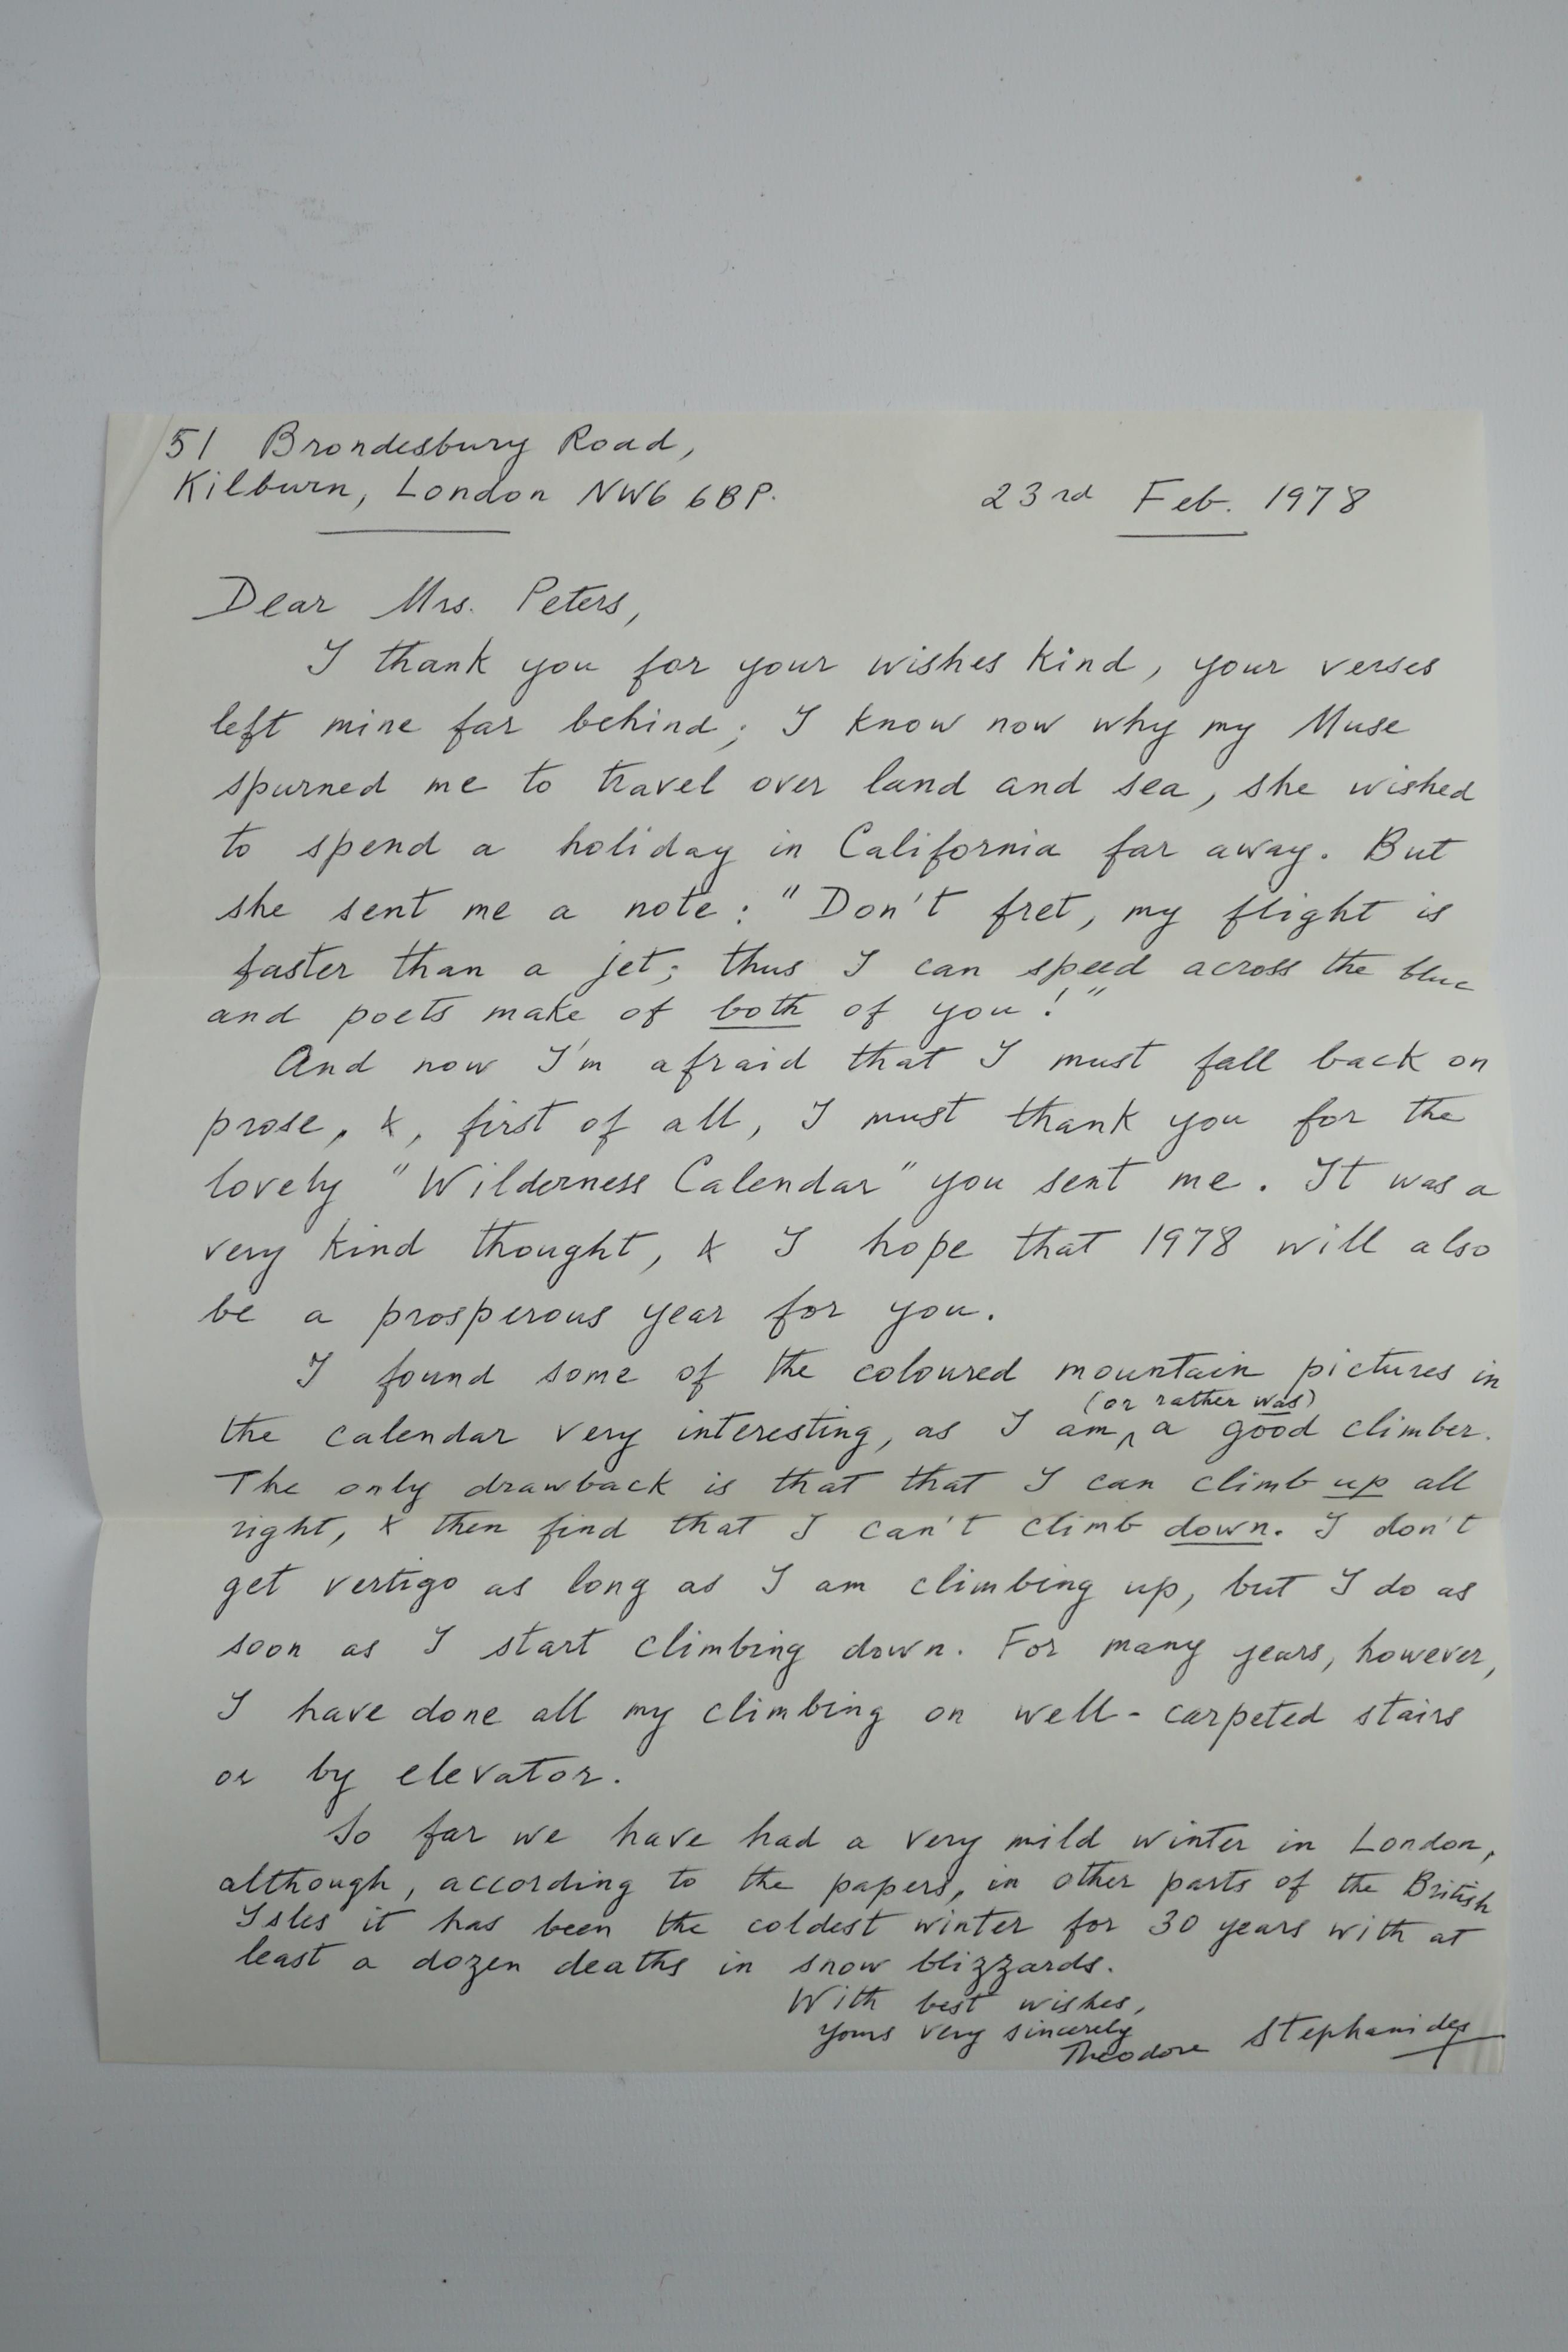 51 Brondesbury Road,
Kilburn, London NW6 6BP.
23rd Feb. 1978
Dear Mrs. Peters,
I thank you for your wishes kind, your verses
left mine far behind; I know now why my Muse
spurned me to travel over land and sea, she wished
to spend a holiday in California far away. But
she sent me a note: "Don't fret, my flight is
faster than a jet; thus I can speed across the blue
and poets make of both of you!"
And now I'm afraid that I must fall back on
prose, &, first of all, I must thank you for the
lovely "Wilderness Calendar" you sent me. It was a
very kind thought, & I hope that 1978 will also
be a prosperous year for you.
I found some of the coloured mountain pictures in
(or rather was)
the calendar very interesting, as I am a good climber.
The only drawback is that that I can climb up all
right, & then find that I can't climb down. I don't
get vertigo as long as I am climbing up, but I do as
soon as I start climbing down. For many years, however,
I have done all my climbing on well-carpeted stairs
or by elevator.
So far we have had a very mild winter in London,
although, according to the papers, in other parts of the British
Isles it has been the coldest winter for 30 years with at
least a dozen deaths in snow blizzards.
With best wishes,
yours very sincerely
Theodore Stephanides